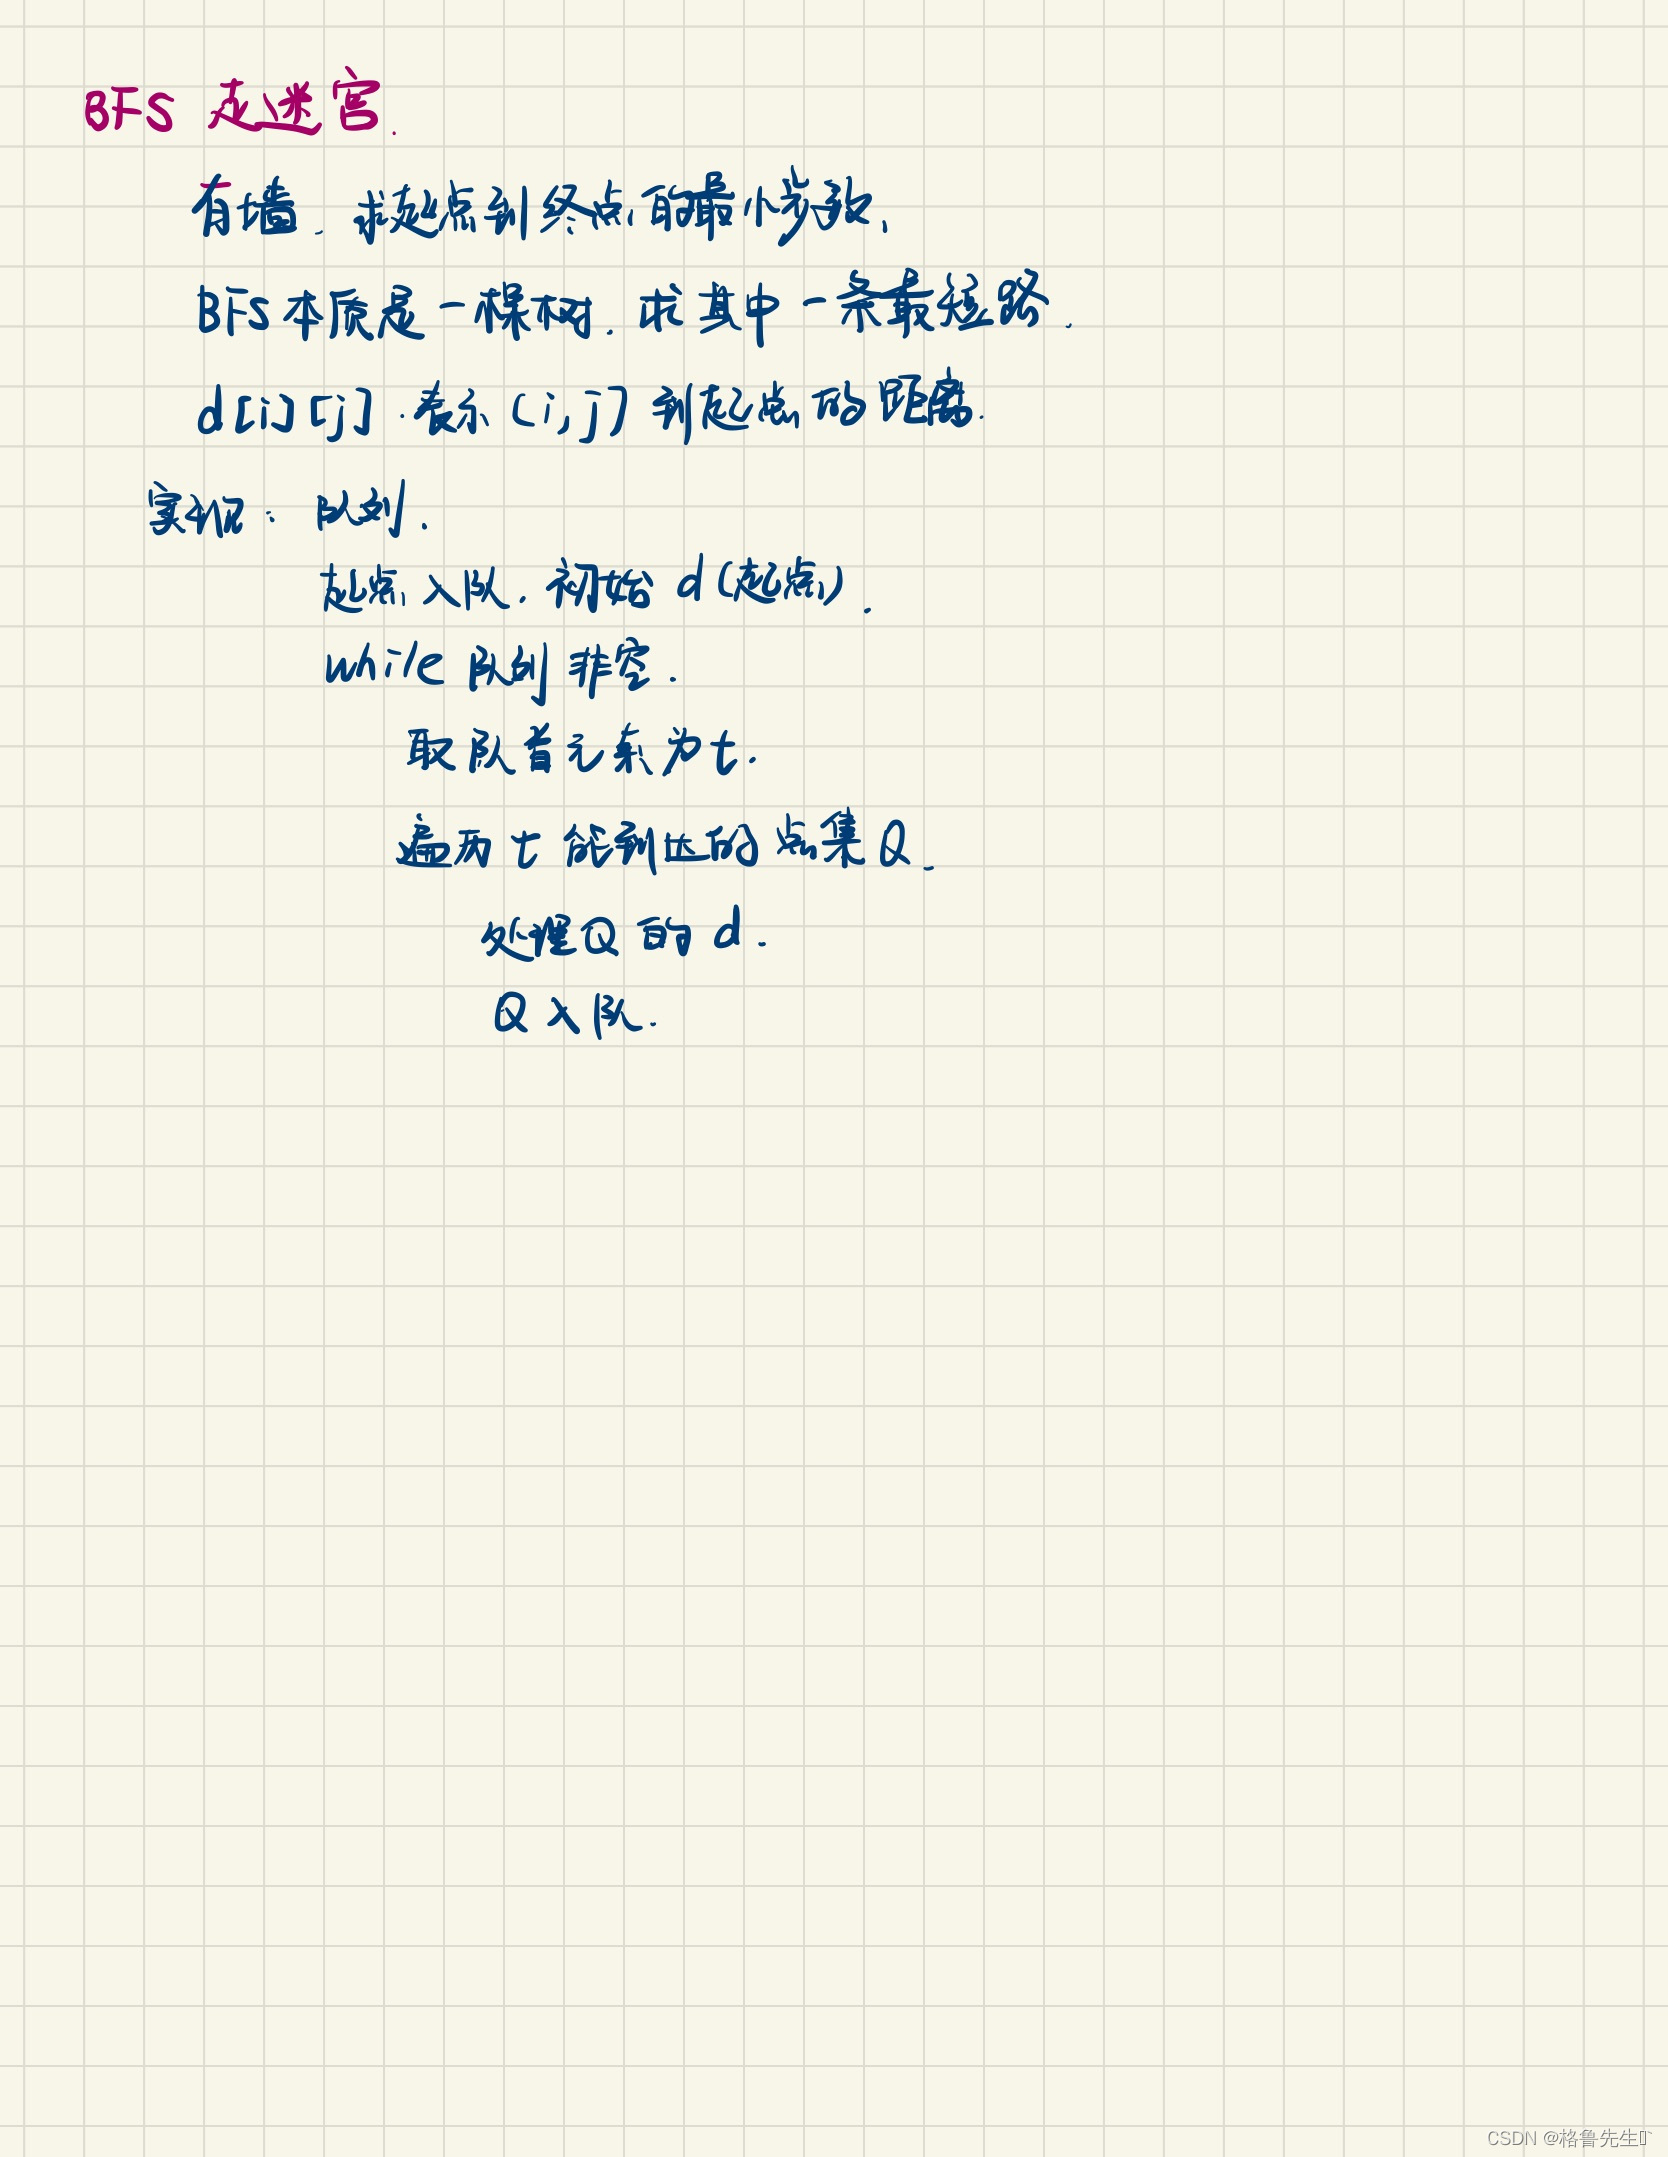 BFS 走迷宫.
有墙. 求起点到终点的最小步数.
BFS本质是一棵树. 求其中一条最短路.
d[i][j] . 表示 (i,j) 到起点的距离.
实现: 队列.
起点入队. 初始 d(起点).
while 队列非空.
取队首元素为t.
遍历 t 能到达的点集 Q.
处理Q的d.
Q入队.
CSDN @格鲁先生